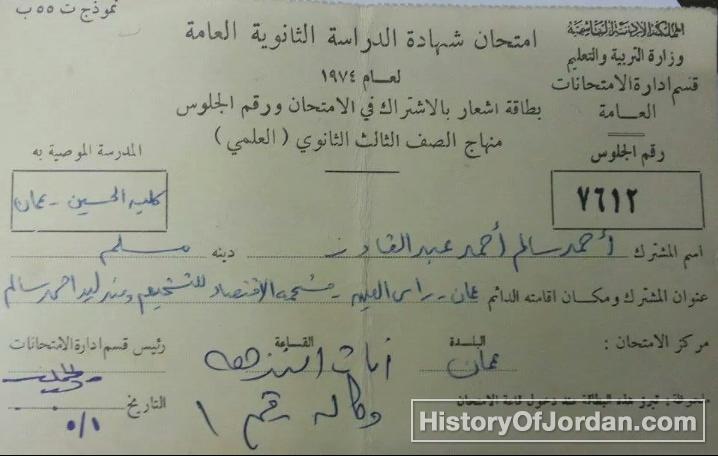 نموذج ت ٥٥ ب
المملكة الاردنية الهاشمية
وزارة التربية والتعليم
قسم ادارة الامتحانات
العامة
امتحان شهادة الدراسة الثانوية العامة
لعام ١٩٧٤
بطاقة اشعار بالاشتراك في الامتحان ورقم الجلوس
منهاج الصف الثالث الثانوي ( العلمي )
رقم الجلوس
٧٦١٢
المدرسة الموصية به
كلية الحسين - عمان
اسم المشترك أحمد سالم أحمد عبد القادر دينه مسلم
عنوان المشترك ومكان اقامته الدائم عمان - راس العين - احمد سالم
مركز الامتحان : البلدة عمان القاعة اناث النزهة
وكالة رقم ١
رئيس قسم ادارة الامتحانات
التاريخ ٥/١
ملحوظة : تبرز هذه البطاقة عند دخول قاعة الامتحان
HistoryOfJordan.com